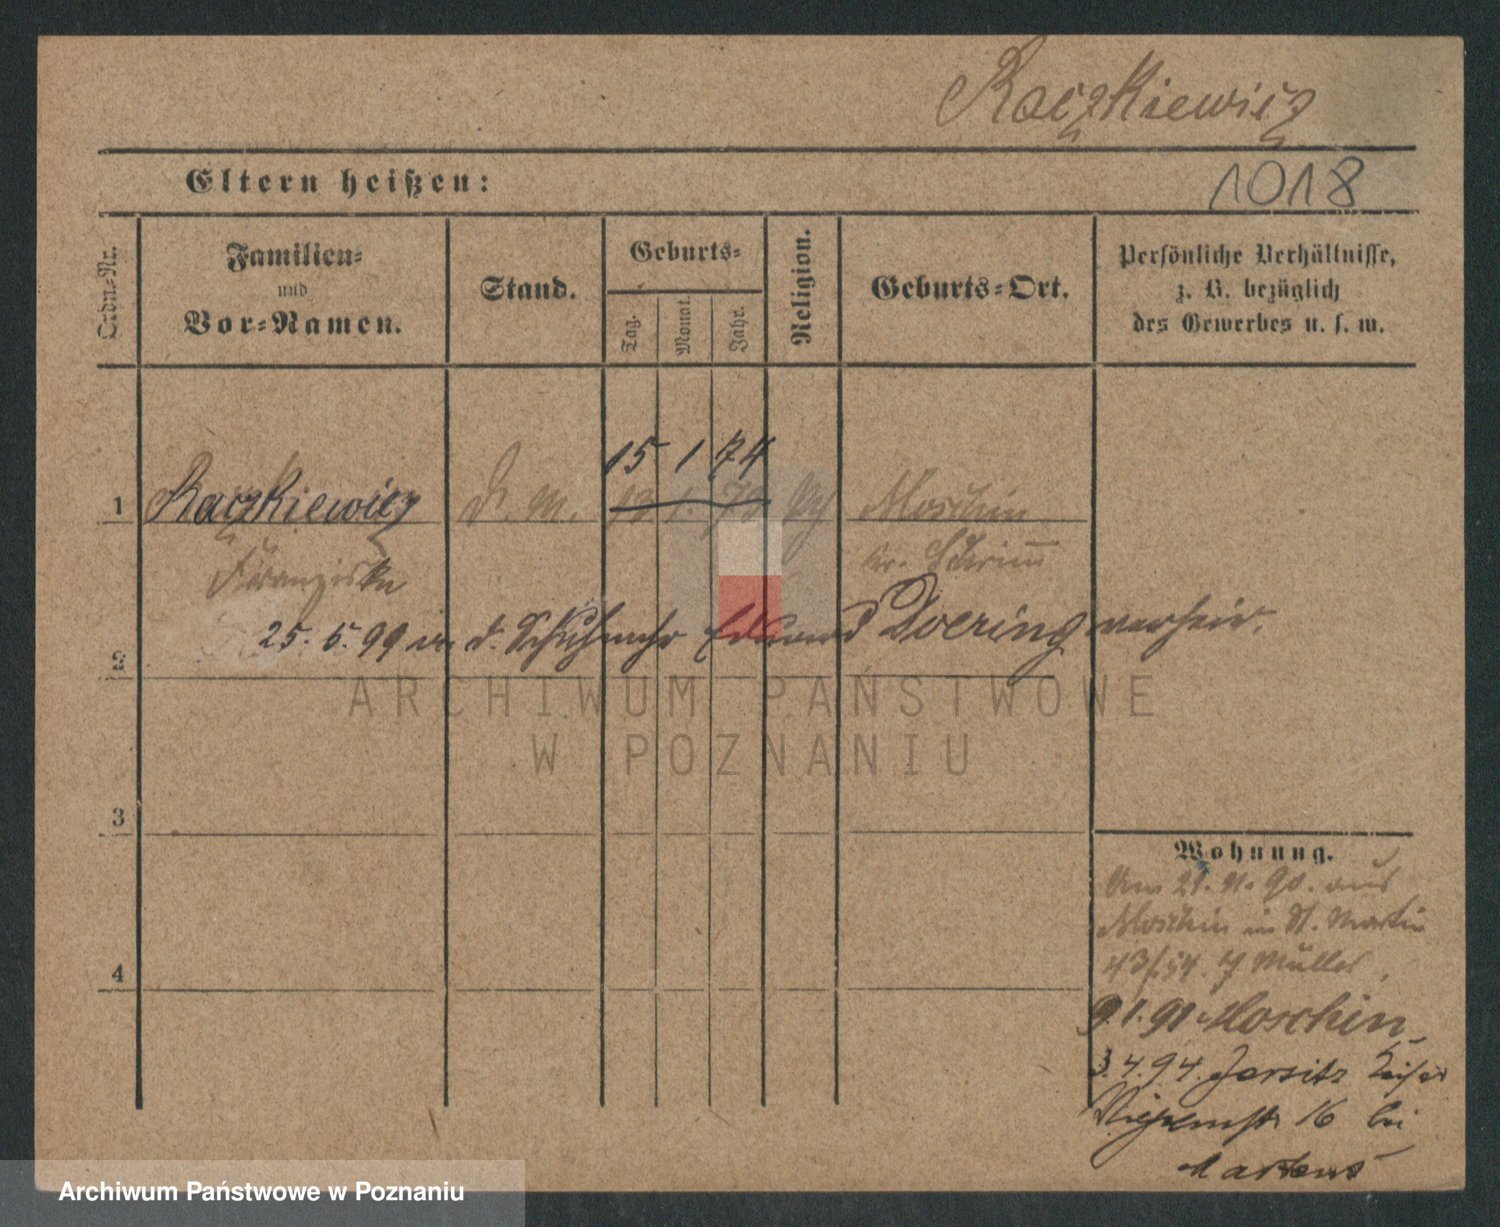 Raczkiewicz
Eltern heißen:
1018
Ordn.-Nr.
Familien-
und
Vor-Namen.
Stand.
Geburts-
Tag.
Monat.
Jahr.
Religion.
Geburts-Ort.
Persönliche Verhältnisse,
z. B. bezüglich
des Gewerbes u. s. w.
15 1 74
1 Raczkiewicz d. M. 13 1. 73 Moschin
Franziska Kr. Schrimm
25. 5. 99 d. Schuhmchr Eduard Doering verheir.
2
3
4
Wohnung.
Am 21. 11. 90. aus
Moschin in St. Martin
Müller
9. 1. 91 Moschin
3. 4. 94. Jersitz Kaiser
16 bei
Martens
ARCHIWUM PAŃSTWOWE
W POZNANIU
Archiwum Państwowe w Poznaniu